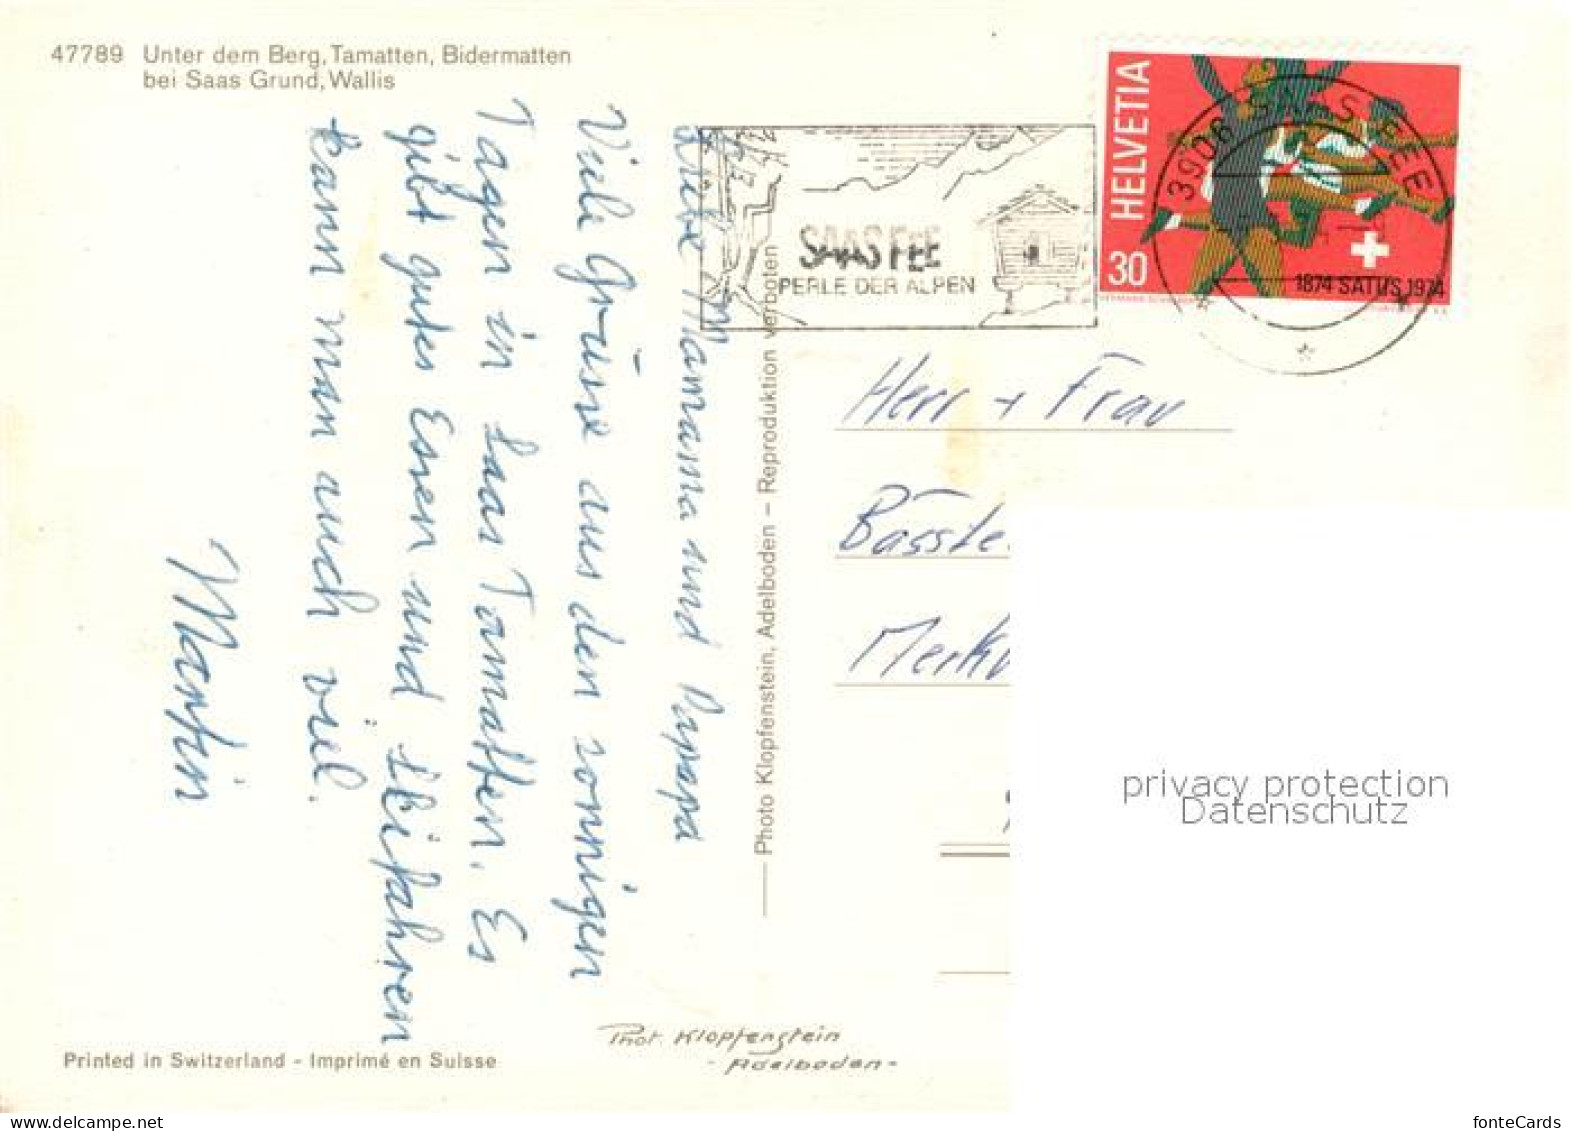 47789 Unter dem Berg, Tamatten, Bidermatten
bei Saas Grund, Wallis
Liebe Mamama und Papapa
Viele Grüsse aus den sonnigen
Tagen in Saas Tamatten. Es
gibt gutes Essen und Skifahren
kann man auch viel.
Martin
Photo Klopfenstein, Adelboden – Reproduktion verboten
SAAS FEE
PERLE DER ALPEN
HELVETIA
30
1874 SATUS 1974
3906 SAAS-FEE
Herr + Frau
Bässle
Merku
privacy protection
Datenschutz
Phot. Klopfenstein
- Adelboden -
Printed in Switzerland - Imprimé en Suisse
www.delcampe.net
fonteCards